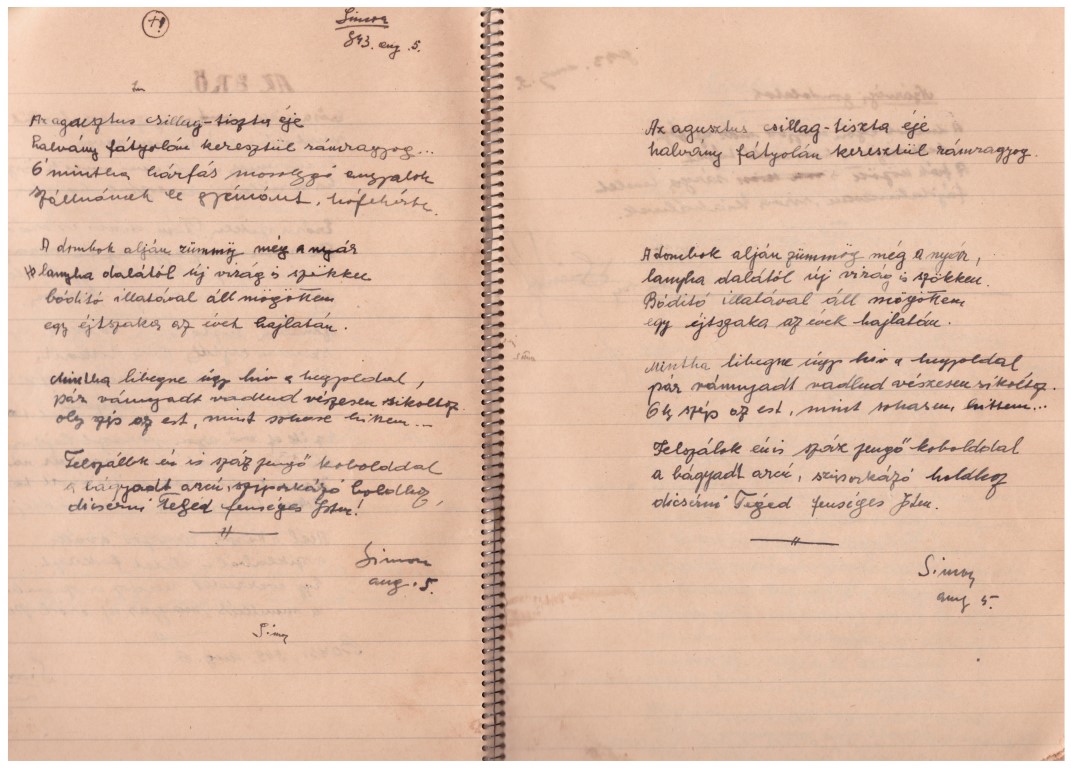 +!
Simon
943. aug. 5.
Az agusztus csillag-tiszta éje
halvány fátyolán keresztül rámragyog...
Ó mintha hárfás mosolygó angyalok
szállnának le gyémánt, hófehérbe.
A dombok alján zümmög még a nyár
lanyha dalától új virág is szökken
bódító illatával áll mögöttem
egy éjtszaka az évek hajlatán.
Mintha libegne úgy hív a hegyoldal,
pár vánnyadt vadlud vészesen sikoltoz.
oly szép az est, mint sohase hittem...
Felszállok én is száz jengő kobolddal
a bágyadt arcú, sziporkázó holdhoz,
dicsérni Téged fenséges Isten!
Simon
aug. 5.
Simon
Az agusztus csillag-tiszta éje
halvány fátyolán keresztül rámragyog.
A dombok alján zümmög még a nyár,
lanyha dalától új virág is szökken.
Bódító illatával áll mögöttem
egy éjtszaka az évek hajlatán.
Mintha libegne úgy hív a hegyoldal
pár vánnyadt vadlud vészesen sikoltoz.
Oly szép az est, mint sohasem hittem...
Felszálok én is száz jengő kobolddal
a bágyadt arcú, sziporkázó holdhoz
dicsérni Téged fenséges Isten.
Simon
aug 5.